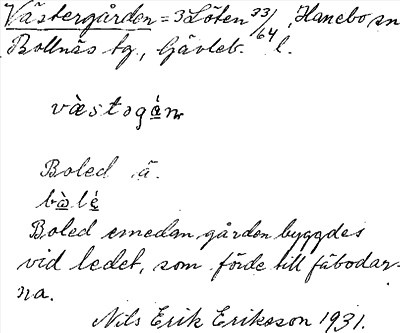 Västergården = 3 Löten 33/64, Hanebo sn
Bollnäs tg., Gävleb. l.
Boled ä.
Boled emedan gården byggdes
vid ledet, som förde till fäbodar-
na.
Nils Erik Eriksson 1931.